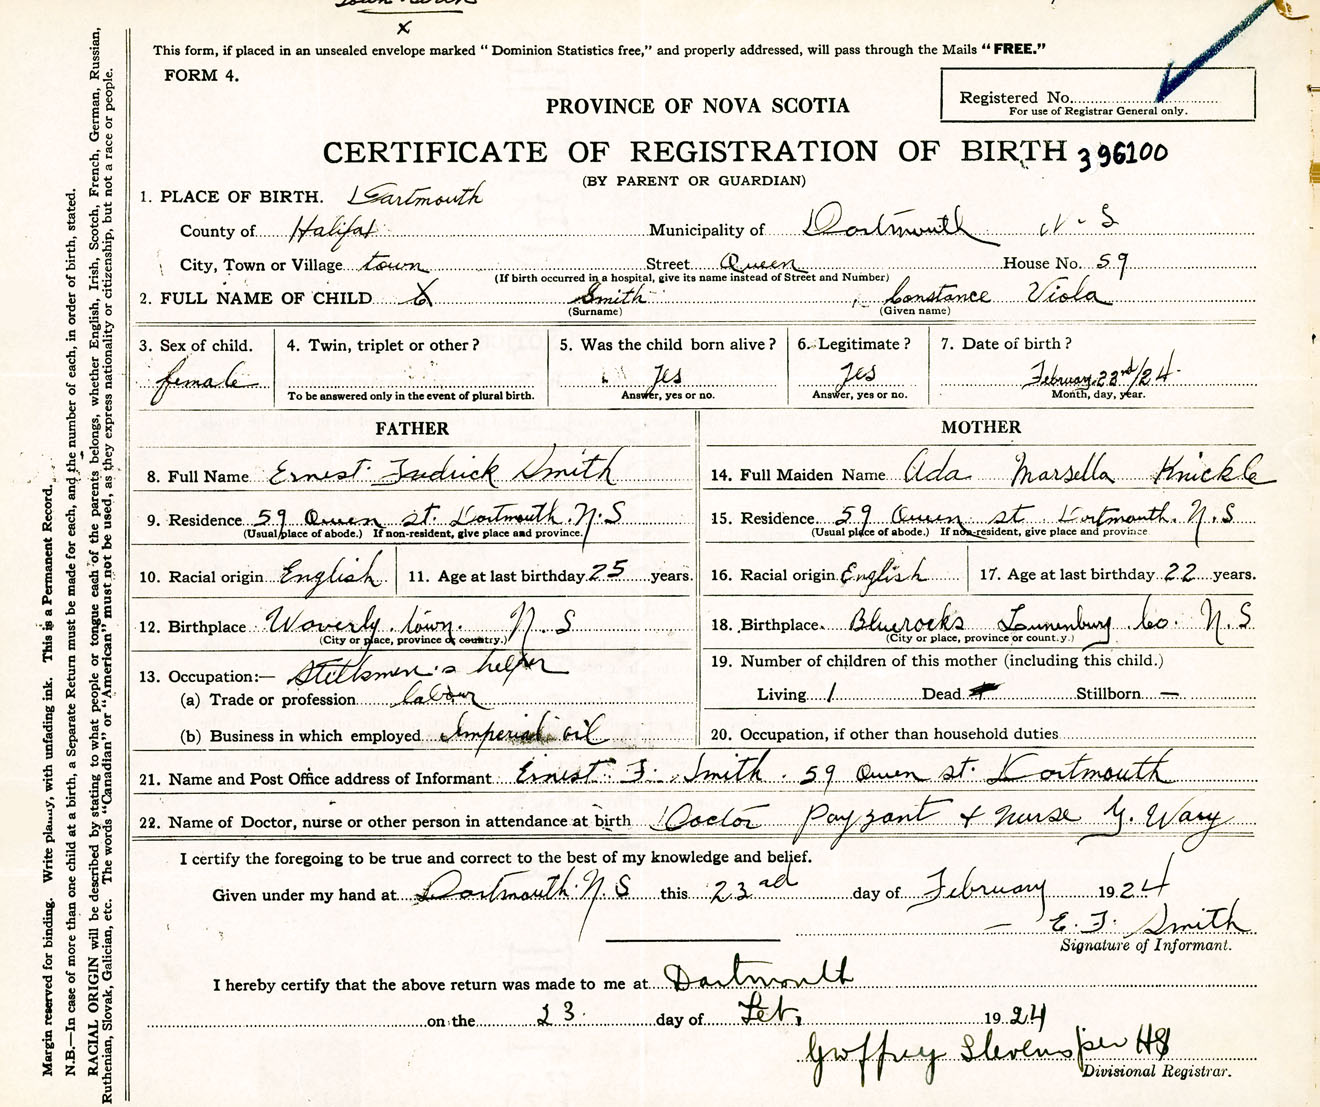 This form, if placed in an unsealed envelope marked "Dominion Statistics free," and properly addressed, will pass through the Mails "FREE."
FORM 4.
Registered No.
For use of Registrar General only.
PROVINCE OF NOVA SCOTIA
CERTIFICATE OF REGISTRATION OF BIRTH 396100
(BY PARENT OR GUARDIAN)
1. PLACE OF BIRTH. Dartmouth
County of Halifax Municipality of Dartmouth N.S
City, Town or Village town Street Queen House No. 59
(If birth occurred in a hospital, give its name instead of Street and Number)
2. FULL NAME OF CHILD X Smith Constance Viola
(Surname) (Given name)
3. Sex of child. 4. Twin, triplet or other? 5. Was the child born alive? 6. Legitimate? 7. Date of birth?
female Yes Yes February 23rd/24
To be answered only in the event of plural birth. Answer, yes or no. Answer, yes or no. Month, day, year.
FATHER MOTHER
8. Full Name Ernest Fredrick Smith 14. Full Maiden Name Ada Marsella Knickle
9. Residence 59 Queen st. Dartmouth. N.S 15. Residence 59 Queen st Dartmouth. N.S
(Usual place of abode.) If non-resident, give place and province. (Usual place of abode.) If non-resident, give place and province
10. Racial origin English 11. Age at last birthday 25 years. 16. Racial origin English 17. Age at last birthday 22 years.
12. Birthplace Waverly. town. N.S 18. Birthplace. Bluerocks Lunenburg Co. N.S
(City or place, province or country.) (City or place, province or count.y.)
13. Occupation:— Stillsmen's helper 19. Number of children of this mother (including this child.)
(a) Trade or profession labour Living 1 Dead Stillborn —
(b) Business in which employed Imperial oil 20. Occupation, if other than household duties
21. Name and Post Office address of Informant Ernest F. Smith. 59 Queen st. Dartmouth
22. Name of Doctor, nurse or other person in attendance at birth Doctor Payzant + nurse G. Wavy
I certify the foregoing to be true and correct to the best of my knowledge and belief.
Given under my hand at Dartmouth. N.S this 23rd day of February 1924
E. F. Smith
Signature of Informant.
I hereby certify that the above return was made to me at Dartmouth
on the 23. day of Feb, 1924
Goffrey Stevens per HS
Divisional Registrar.
Margin reserved for binding. Write plainly, with unfading ink. This is a Permanent Record.
N.B.—In case of more than one child at a birth, a Separate Return must be made for each, and the number of each, in order of birth, stated.
RACIAL ORIGIN will be described by stating to what people or tongue each of the parents belongs, whether English, Irish, Scotch, French, German, Russian,
Ruthenian, Slovak, Galician, etc. The words "Canadian" or "American" must not be used, as they express nationality or citizenship, but not a race or people.